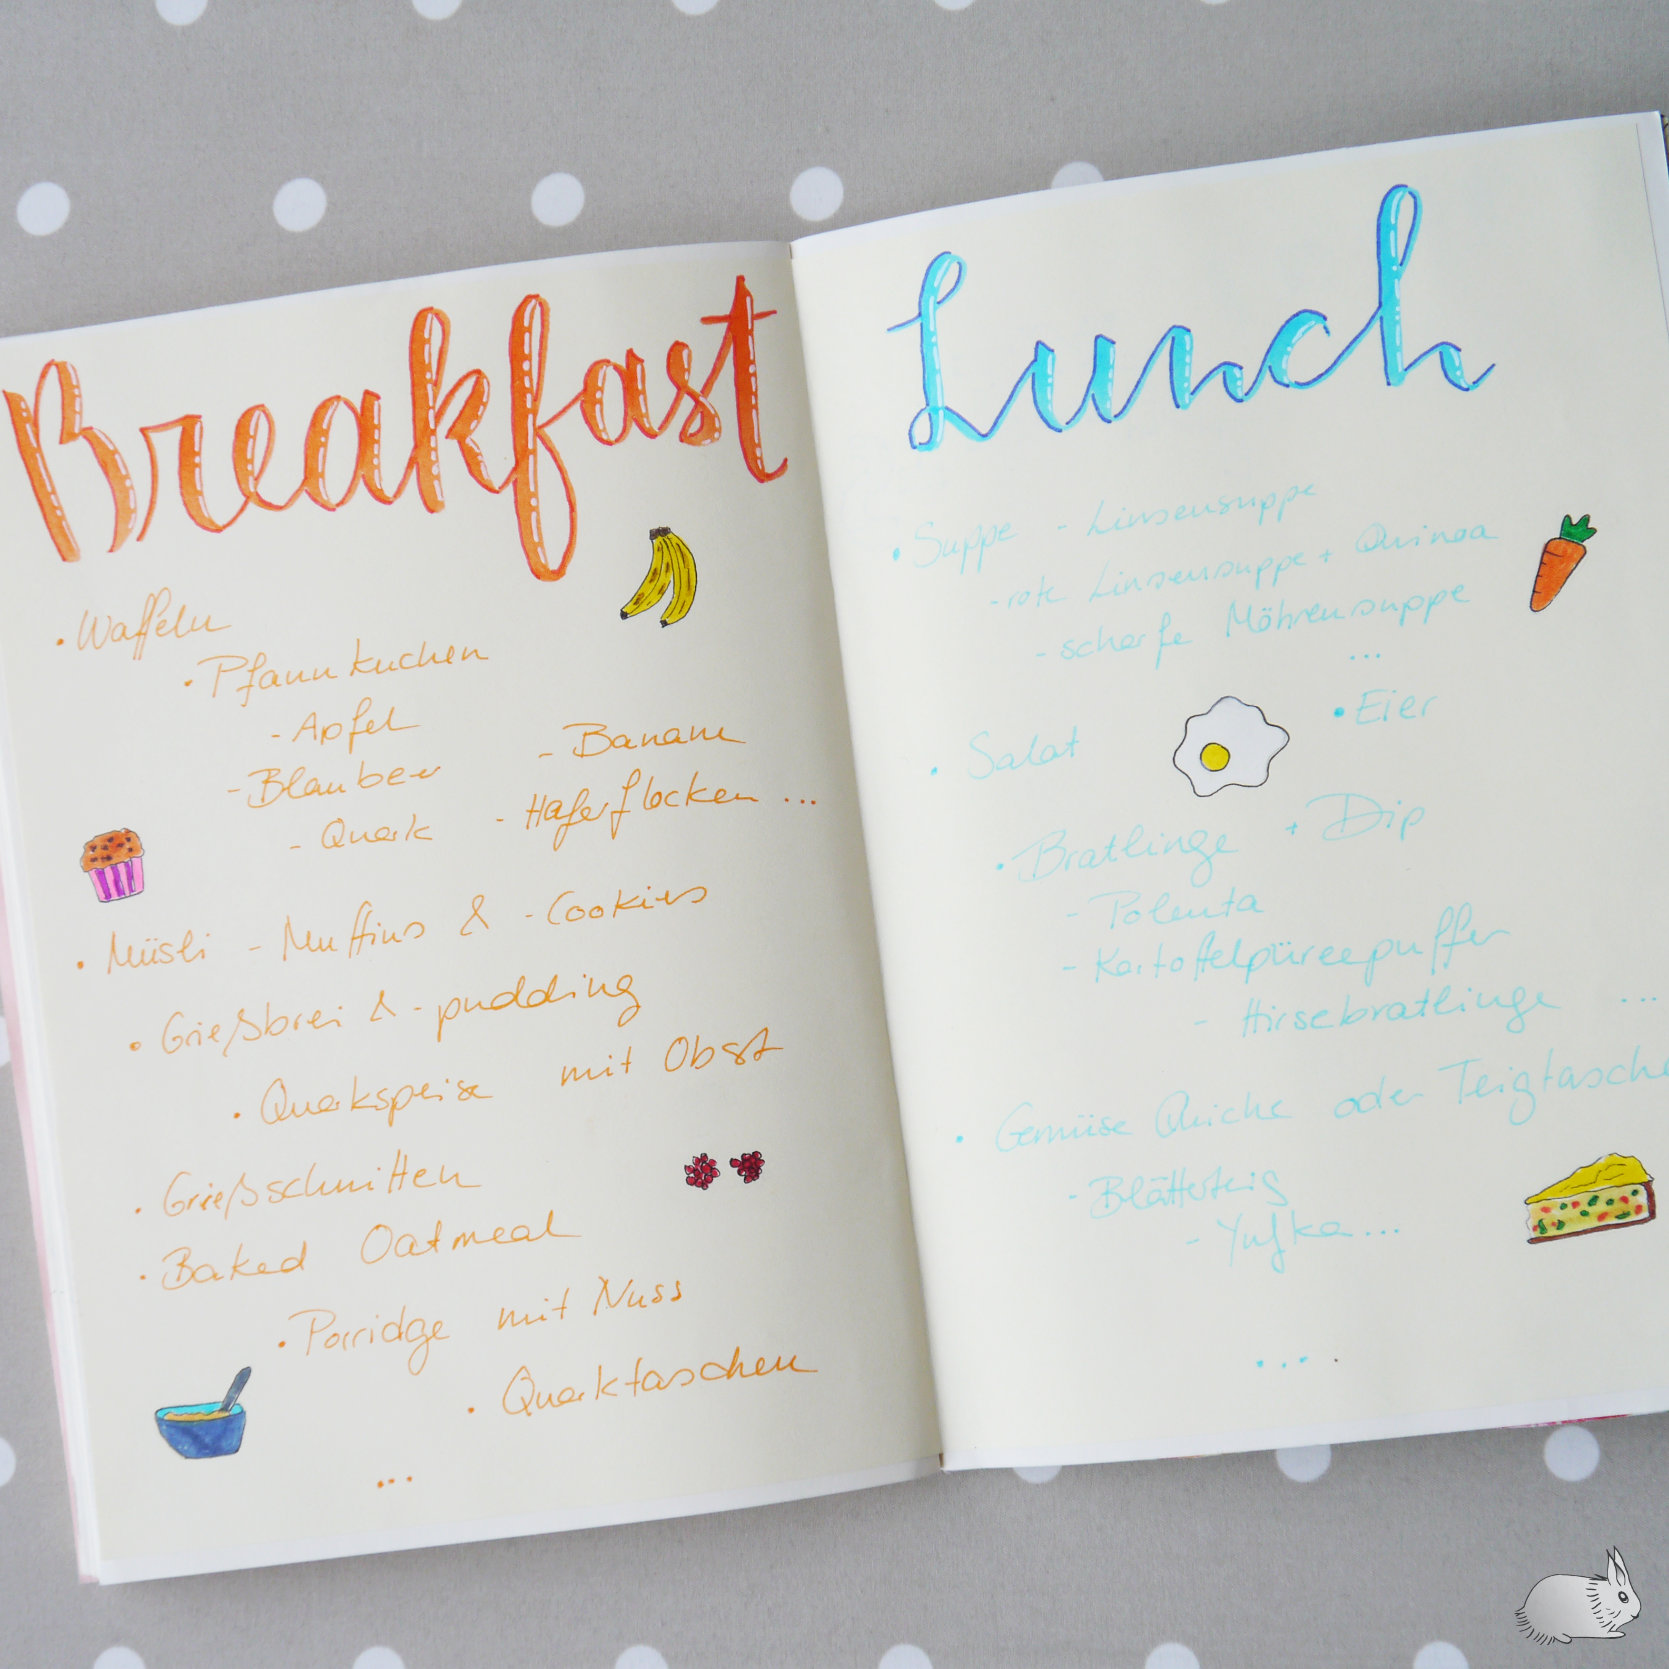 Breakfast
• Waffeln
• Pfannkuchen
- Apfel
- Blaubeer
- Banane
- Quark
- Haferflocken ...
• Müsli - Muffins & - Cookies
• Grießbrei & - pudding
• Quarkspeise mit Obst
• Grießschnitten
• Baked Oatmeal
• Porridge mit Nuss
• Quarktaschen
...
Lunch
• Suppe - Linsensuppe
- rote Linsensuppe + Quinoa
- scharfe Möhrensuppe
...
• Eier
• Salat
• Bratlinge + Dip
- Polenta
- Kartoffelpüreepuffer
- Hirsebratlinge ...
• Gemüse Quiche oder Teigtasche
- Blätterteig
- Yufka ...
....